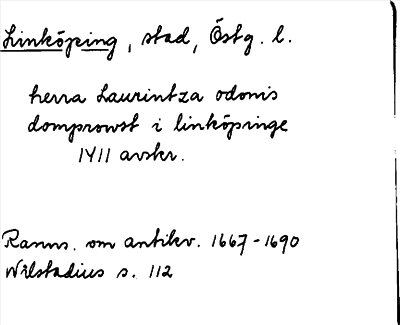 Linköping, stad, Östg. l.
herra Laurintza odonis
domprowst i linköpinge
1411 avskr.
Ranns. om antikv. 1667-1690
Wilstadius s. 112